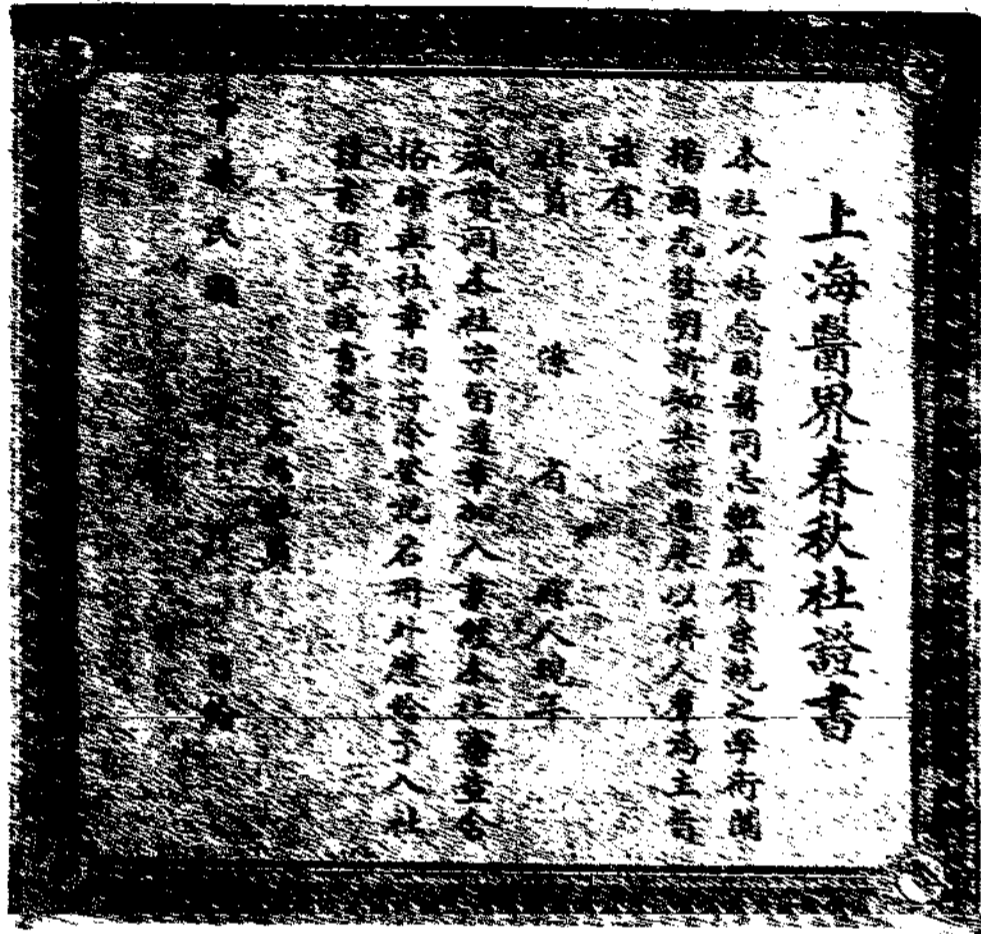 上海醫界春秋社證書
本社以結合國醫同志組成有系統之學術團
揚國光發明新知共謀進展以壽人羣為主旨
茲有
社員 係 省 縣人現年
歲贊同本社宗旨遵章加入書經本社審查合
格確與社章相符除登記名冊外應發予入社
證書須至證書者
中華民國